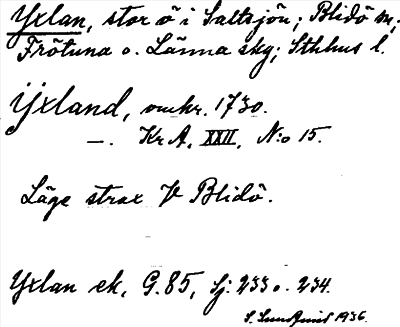 Yxlan, stor ö i Saltsjön; Blidö sn;
Frötuna o. Länna skg; Sthlms l.
Ÿxland, omkr. 1730.
—. Kr A, XXII, N:o 15.
Läge strax V Blidö.
Yxlan ek, G. 85, Sj: 233 o. 234.
S. Sundqvist 1936.